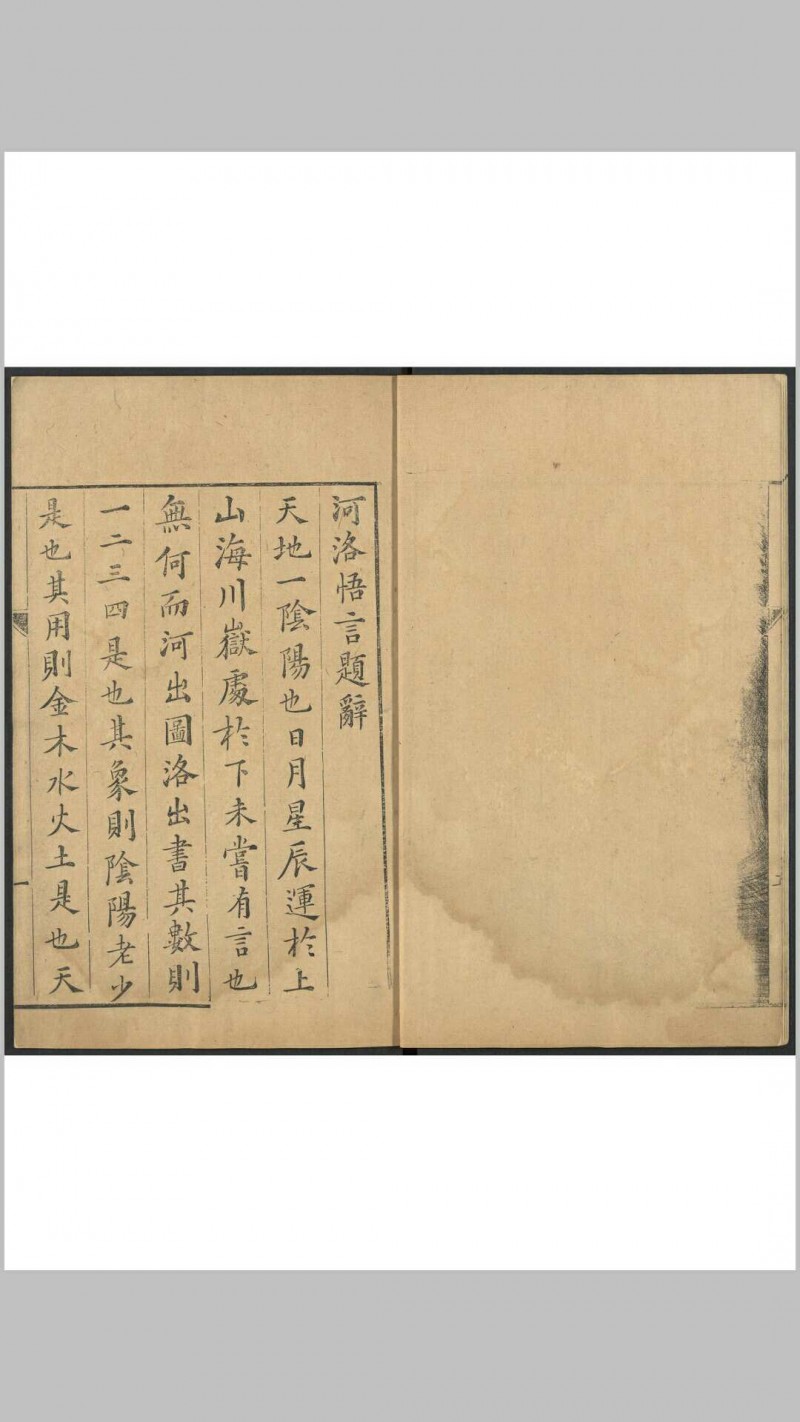 河洛悟言題辭
天地一陰陽也日月星辰運於上
山海川嶽處於下未嘗有言也
無何而河出圖洛出書其數則
一二三四是也其象則陰陽老少
是也其用則金木水火土是也天